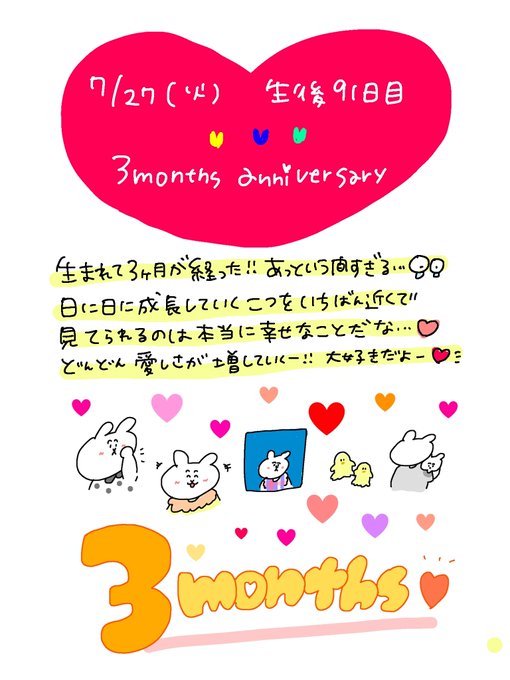 7/27(火) 生後91日目
3months anniversary
生まれて3ヶ月が経った!! あっという間すぎる…
日に日に成長していく二つをいちばん近くで
見てられるのは本当に幸せなことだな…
どんどん愛しさが増していくー!! 大好きだよー
3months